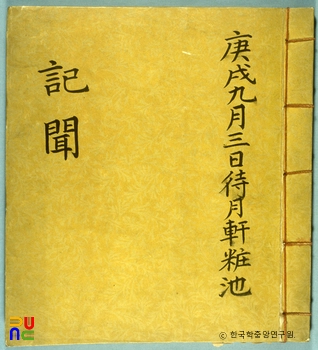 庚戌九月三日待月軒粧池
記聞
ⓒ 한국학중앙연구원.